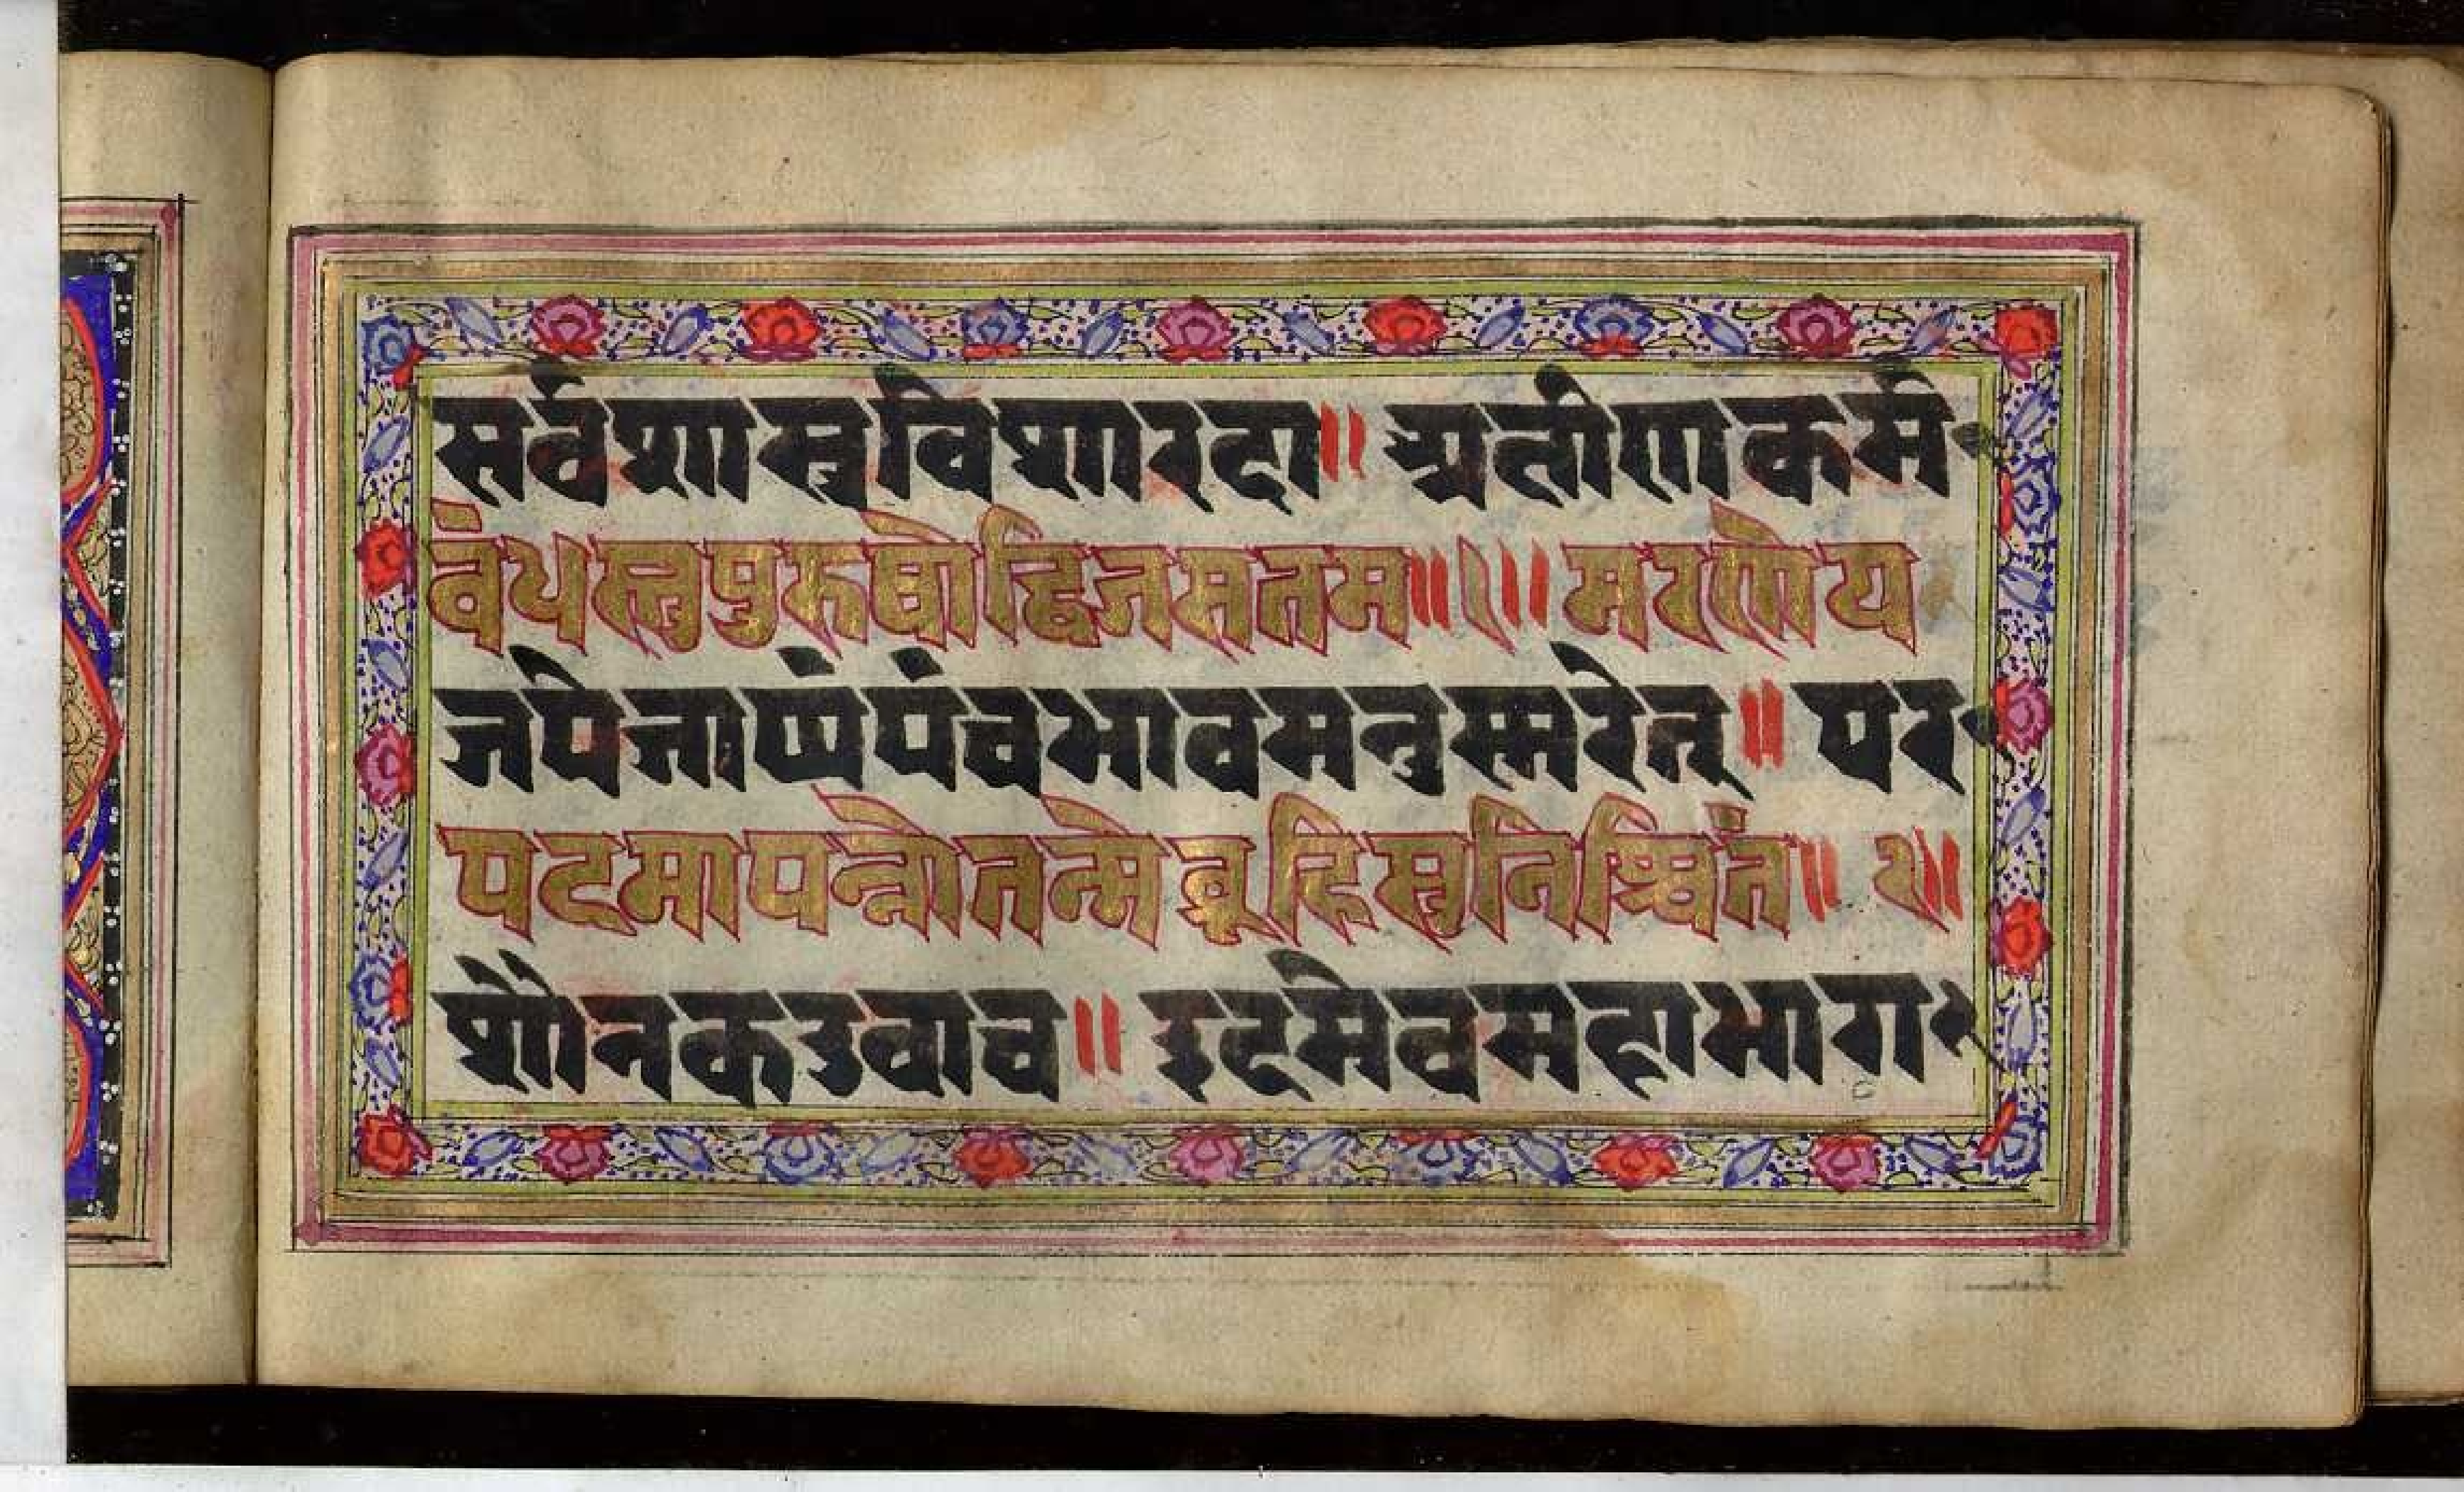 सर्वशास्त्रविशारदा॥ अक्षीणकर्म
वंधस्तुपुरुषोद्विजसतम॥१॥ मरणेय
जपेज्जाप्यंपंचभावमनुस्मरेत्॥ पर
पदमापन्नोतन्मेब्रूहिसुनिश्चितं॥२॥
शौनकउवाच॥ इदमेवमहाभाग